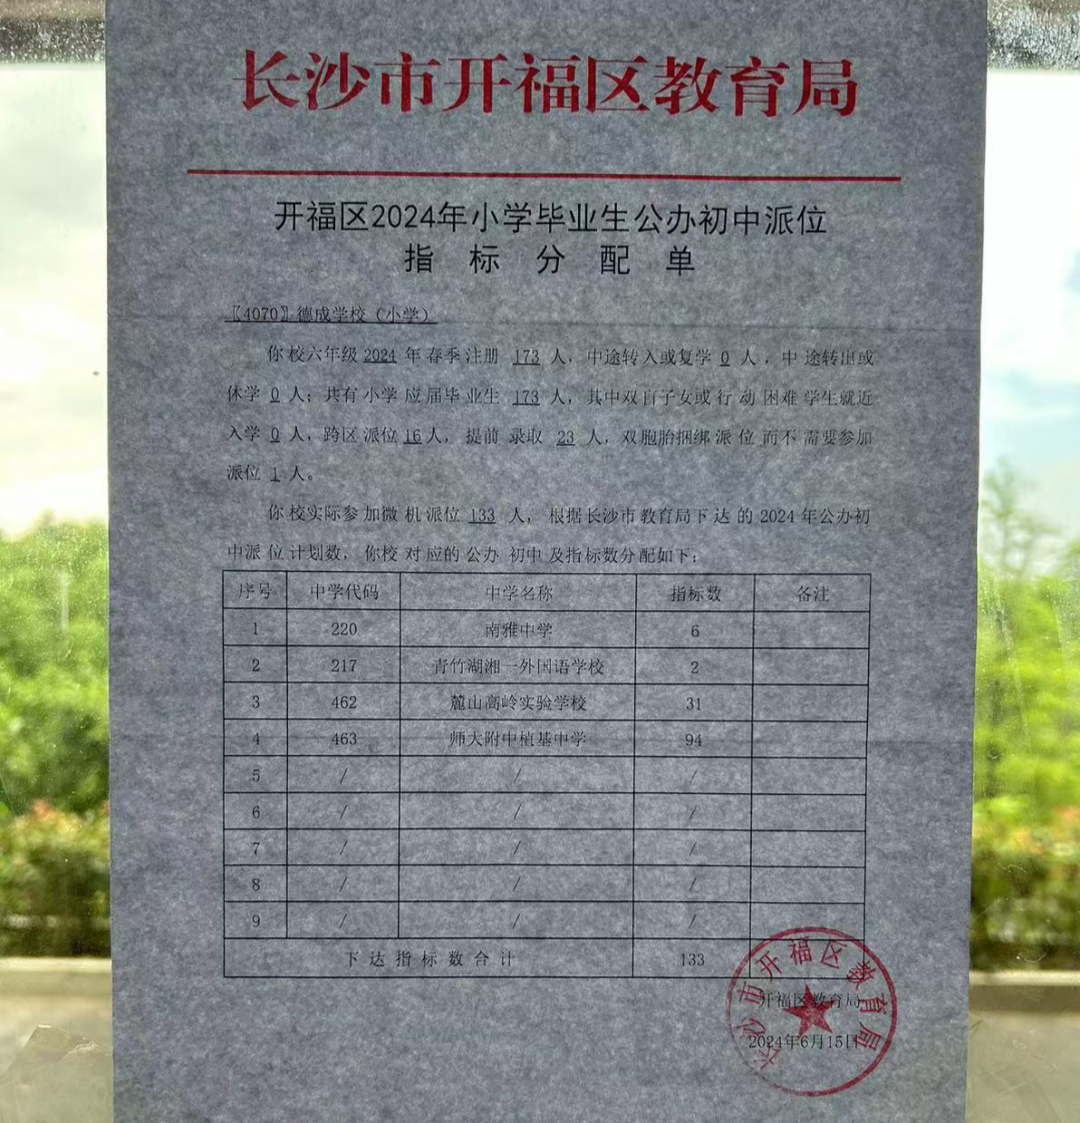 长沙市开福区教育局
开福区2024年小学毕业生公办初中派位
指标分配单
〖4070〗德成学校（小学）
你校六年级 2024 年春季注册 173 人，中途转入或复学 0 人，中途转出或
休学 0 人；共有小学应届毕业生 173 人，其中双盲子女或行动困难学生就近
入学 0 人，跨区派位16人，提前录取 23 人，双胞胎捆绑派位而不需要参加
派位 1 人。
你校实际参加微机派位 133 人，根据长沙市教育局下达的 2024 年公办初
中派位计划数，你校对应的公办初中及指标数分配如下：
序号 中学代码 中学名称 指标数 备注
1 220 南雅中学 6
2 217 青竹湖湘一外国语学校 2
3 462 麓山高岭实验学校 31
4 463 师大附中植基中学 94
5 / / /
6 / / /
7 / / /
8 / / /
9 / / /
下达指标数合计 133
开福区教育局
2024年6月15日
长沙市开福区教育局